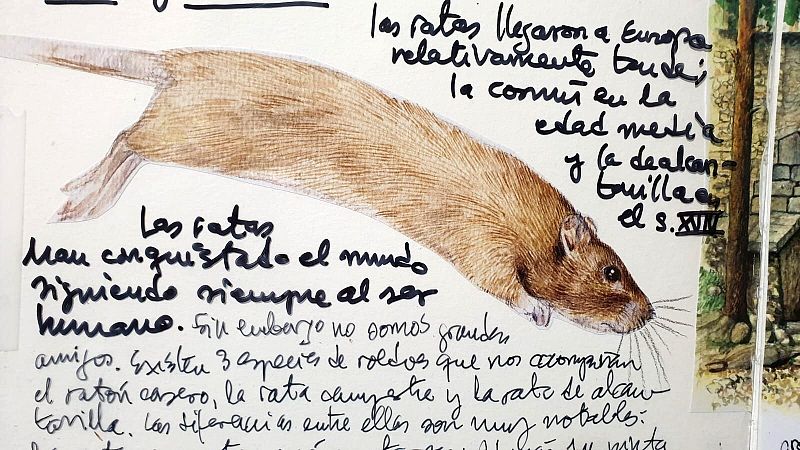 las ratas llegaron a Europa
relativamente tarde;
la común en la
edad media
y la de alcan-
tarilla en
el s. XVIII
Las ratas
han conquistado el mundo
siguiendo siempre al ser
humano. Sin embargo no somos grandes
amigos. Existen 3 especies de roedores que nos acompañan
el ratón casero, la rata campestre y la rata de alcan
tarilla. Las diferencias entre ellas son muy notables: